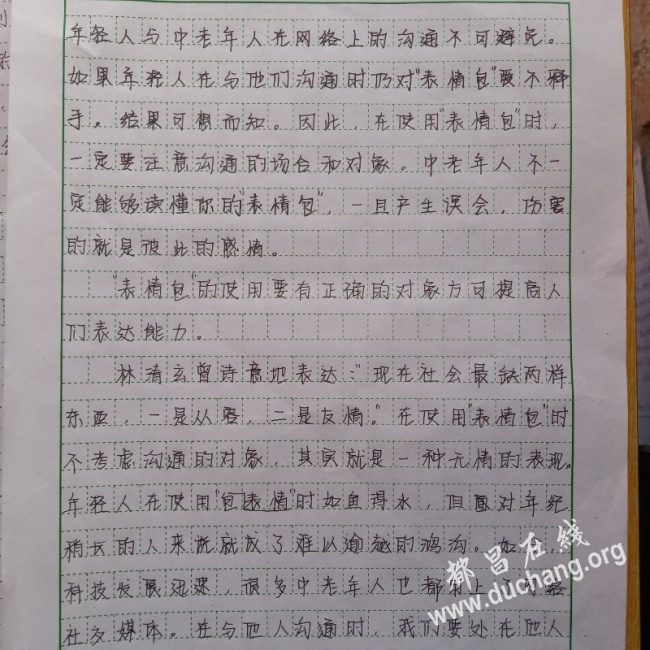 年轻人与中老年人在网络上的沟通不可避免。
如果年轻人在与他们沟通时仍对"表情包"爱不释
手。结果可想而知。因此，在使用"表情包"时，
一定要注意沟通的场合和对象。中老年人不一
定能够读懂你的"表情包"，一旦产生误会，伤害
的就是彼此的感情。
"表情包"的使用要有正确的对象方可提高人
们表达能力。
林清玄曾诗意地表达："现在社会最缺两样
东西，一是从容，二是友情。"在使用"表情包"时
不考虑沟通的对象，其实就是一种无情的表现。
年轻人在使用"包表情"时如鱼得水，但面对年纪
稍长的人来说就成了难以逾越的鸿沟。如今，
科技发展迅速，很多中老年人也都上了
社交媒体。在与他人沟通时，我们要处在他人
都昌在线
www.duchang.org